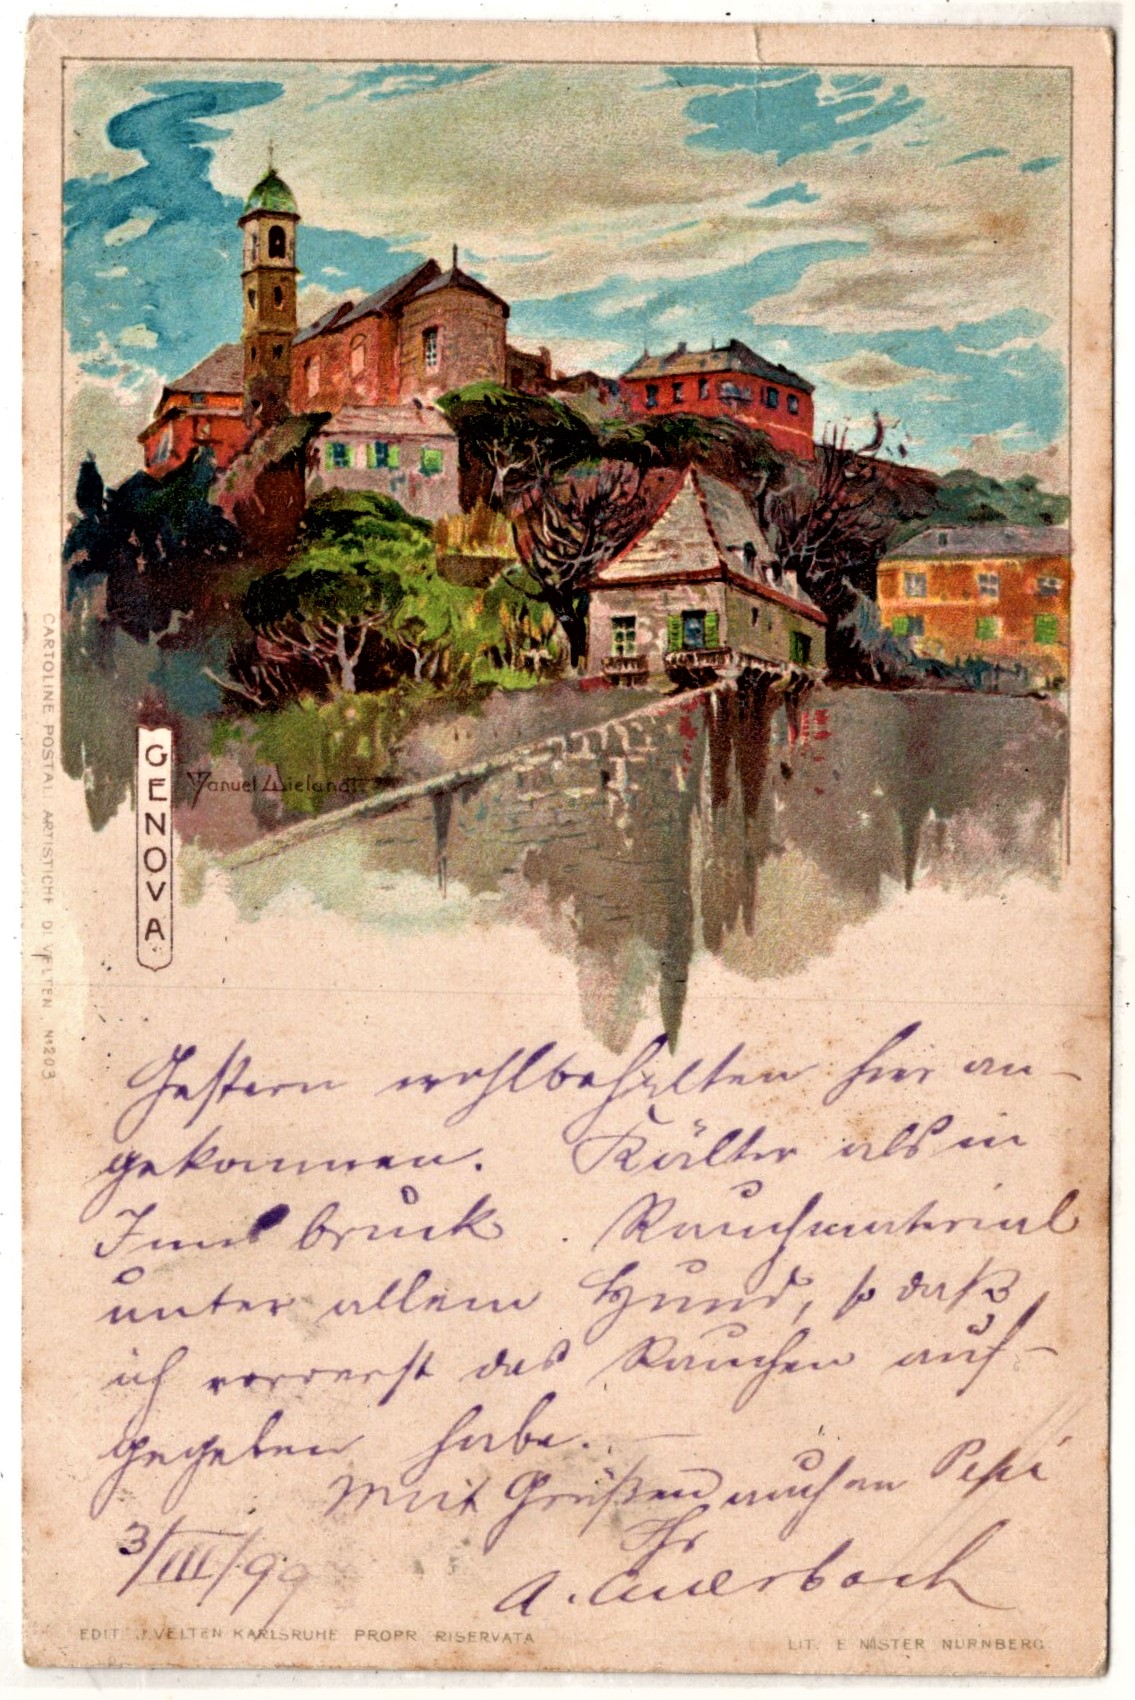 GENOVA
Manuel Wielandt
CARTOLINE POSTAL ARTISTICHE DI VELTEN No 203
Gestern wohlbehalten hier an-
gekommen. Kälter als in
Innsbruck. Rauchmaterial
unter allem Hund, so daß
ich vorerst das Rauchen auf-
gegeben habe. —
Mit Grüßen auch an Pepi
Ihr
A. Auerbach
3/III/99
EDIT. J. VELTEN KARLSRUHE PROPR. RISERVATA
LIT. E. NISTER NURNBERG.